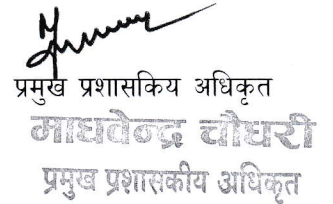 प्रमुख प्रशासकिय अधिकृत
माधवेन्द्र चौधरी
प्रमुख प्रशासकीय अधिकृत